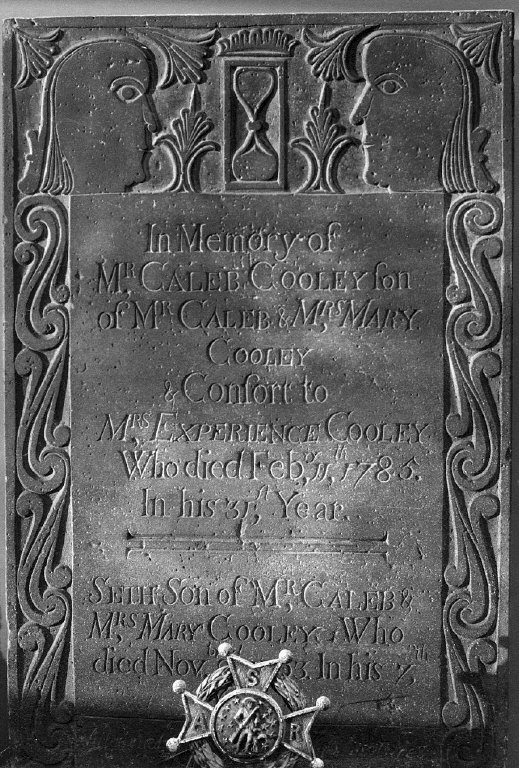 In Memory of
Mʀ. CALEB COOLEY ſon
of Mʀ. CALEB & Mʀs MARY
COOLEY
& Conſort to
Mʀs EXPERIENCE COOLEY
Who died Feb,ʸ 11,ᵗʰ 1785.
In his 31,ˢᵗ Year.
SETH Son of Mʀ. CALEB &
Mʀs MARY COOLEY, Who
died Nov. In his
S
A R